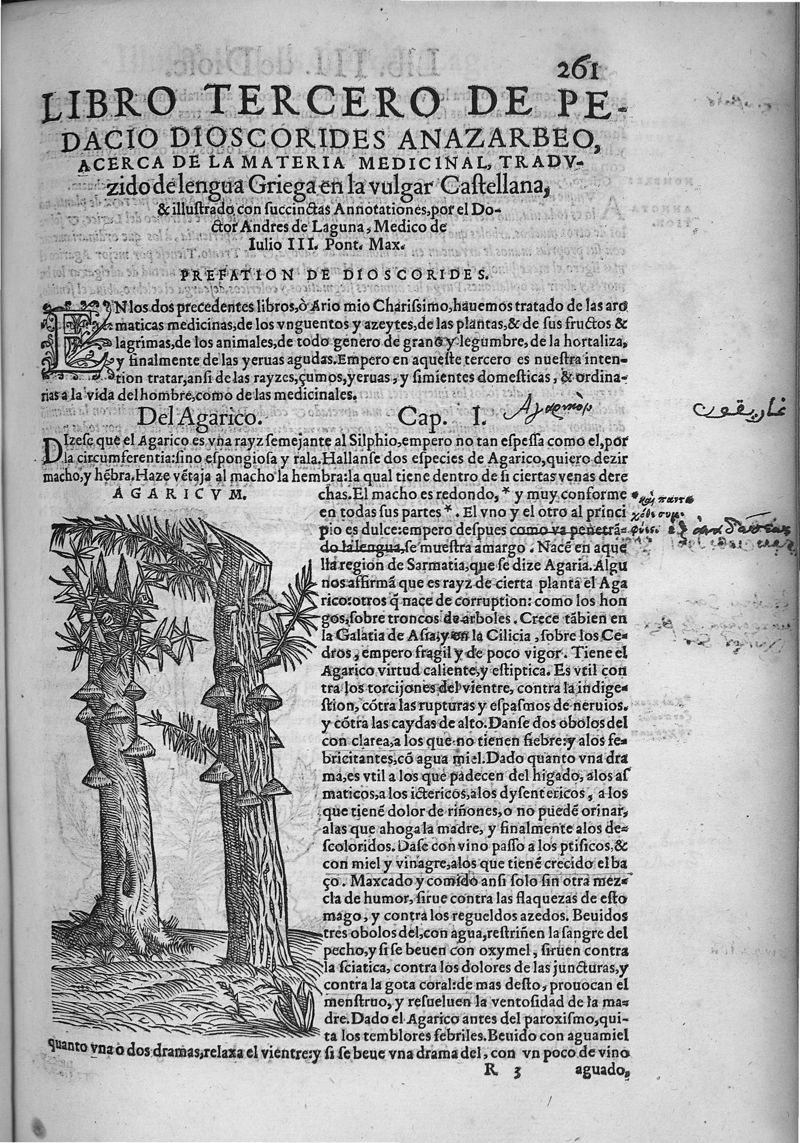 261
LIBRO TERCERO DE PE-
DACIO DIOSCORIDES ANAZARBEO,
ACERCA DE LA MATERIA MEDICINAL, TRADV-
zido de lengua Griega en la vulgar Castellana,
& illustrado con succinctas Annotationes, por el Do-
ctor Andres de Laguna, Medico de
Iulio III. Pont. Max.
PREFATION DE DIOSCORIDES.
EN los dos precedentes libros, ò Ario mio Charissimo, hauemos tratado de las aro
maticas medicinas, de los vnguentos y azeytes, de las plantas, & de sus fructos &
lagrimas, de los animales, de todo genero de grano y legumbre, de la hortaliza,
y finalmente de las yeruas agudas. Empero en aqueste tercero es nuestra inten-
tion tratar, ansi de las rayzes, çumos, yeruas, y simientes domesticas, & ordina-
rias a la vida del hombre, como de las medicinales.
Del Agarico. Cap. I.
غاريقون
DIzese que el Agarico es vna rayz semejante al Silphio, empero no tan espessa como el, por
la circumferentia: sino espongiosa y rala. Hallanse dos especies de Agarico, quiero dezir
macho, y hẽbra. Haze vẽtaja al macho la hembra: la qual tiene dentro de si ciertas venas dere
AGARICVM.
chas. El macho es redondo, * y muy conforme
en todas sus partes *. El vno y el otro al princi
pio es dulce: empero despues como va penetrã-
do la lengua, se muestra amargo. Nace en aque
lla region de Sarmatia, que se dize Agaria. Algu
nos affirmã que es rayz de cierta planta el Aga
rico: otros q̃ nace de corruption: como los hon
gos, sobre troncos de arboles. Crece tãbien en
la Galatia de Assia, y en la Cilicia, sobre los Ce-
dros, empero fragil y de poco vigor. Tiene el
Agarico virtud caliente, y estiptica. Es vtil con
tra los torcijones del vientre, contra la indige-
stion, cõtra las rupturas y espasmos de neruios.
y cõtra las caydas de alto. Danse dos obolos del
con clarea, a los que no tienen fiebre: y a los fe-
bricitantes, cõ agua miel. Dado quanto vna dra
ma, es vtil a los que padecen del higado, a los as
maticos, a los ictericos, a los dysentericos, a los
que tienẽ dolor de riñones, o no puedẽ orinar,
a las que ahoga la madre, y finalmente a los de-
scoloridos. Dase con vino passo a los ptisicos, &
con miel y vinagre, a los que tienẽ crecido el ba
ço. Maxcado y comido ansi solo sin otra mez-
cla de humor, sirue contra las flaquezas de esto
mago, y contra los regueldos azedos. Beuidos
tres obolos del, con agua, restriñen la sangre del
pecho, y si se beuen con oxymel, siruen contra
la sciatica, contra los dolores de las juncturas, y
contra la gota coral: de mas desto, prouocan el
menstruo, y resueluen la ventosidad de la ma-
dre. Dado el Agarico antes del paroxismo, qui-
ta los temblores febriles. Beuido con aguamiel
quanto vna o dos dramas, relaxa el vientre: y si se beue vna drama del, con vn poco de vino
R 3 aguado,